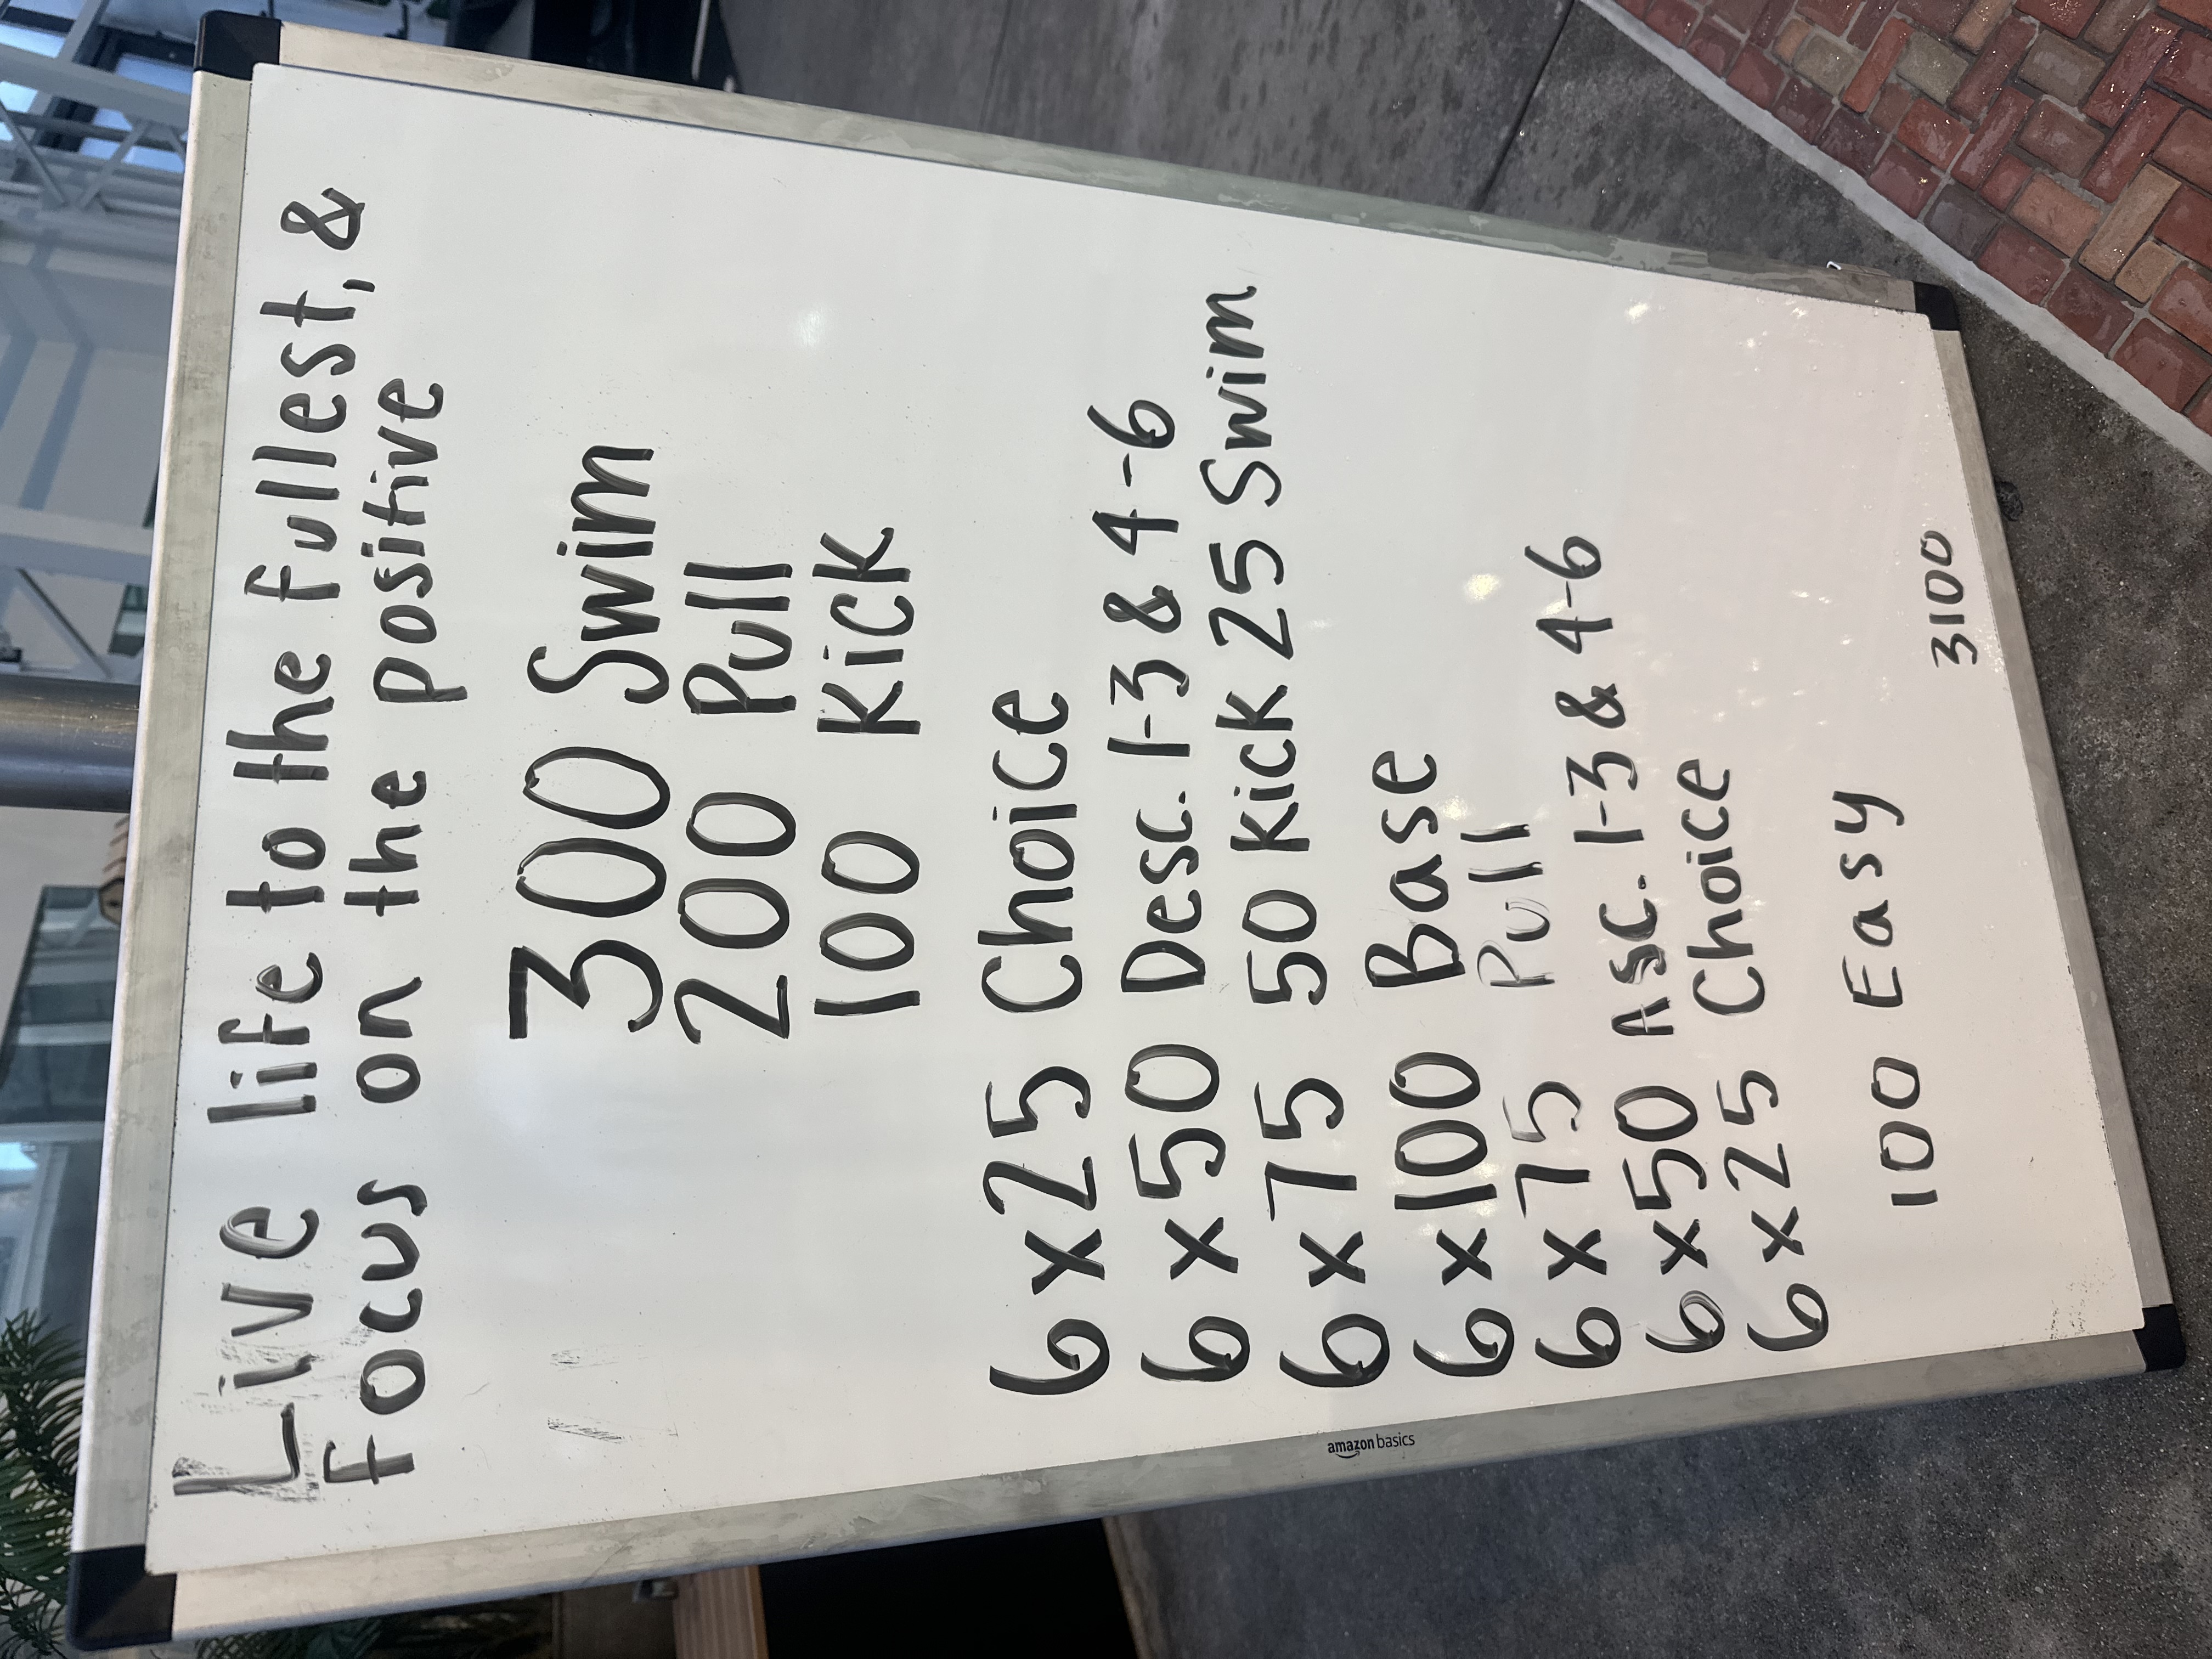 Live life to the fullest, &
Focus on the positive
300 Swim
200 Pull
100 Kick
6 x 25 Choice
6 x 50 Desc. 1-3 & 4-6
6 x 75 50 Kick 25 Swim
6 x 100 Base
6 x 75 Pull
6 x 50 Asc. 1-3 & 4-6
6 x 25 Choice
100 Easy
3100
amazon basics